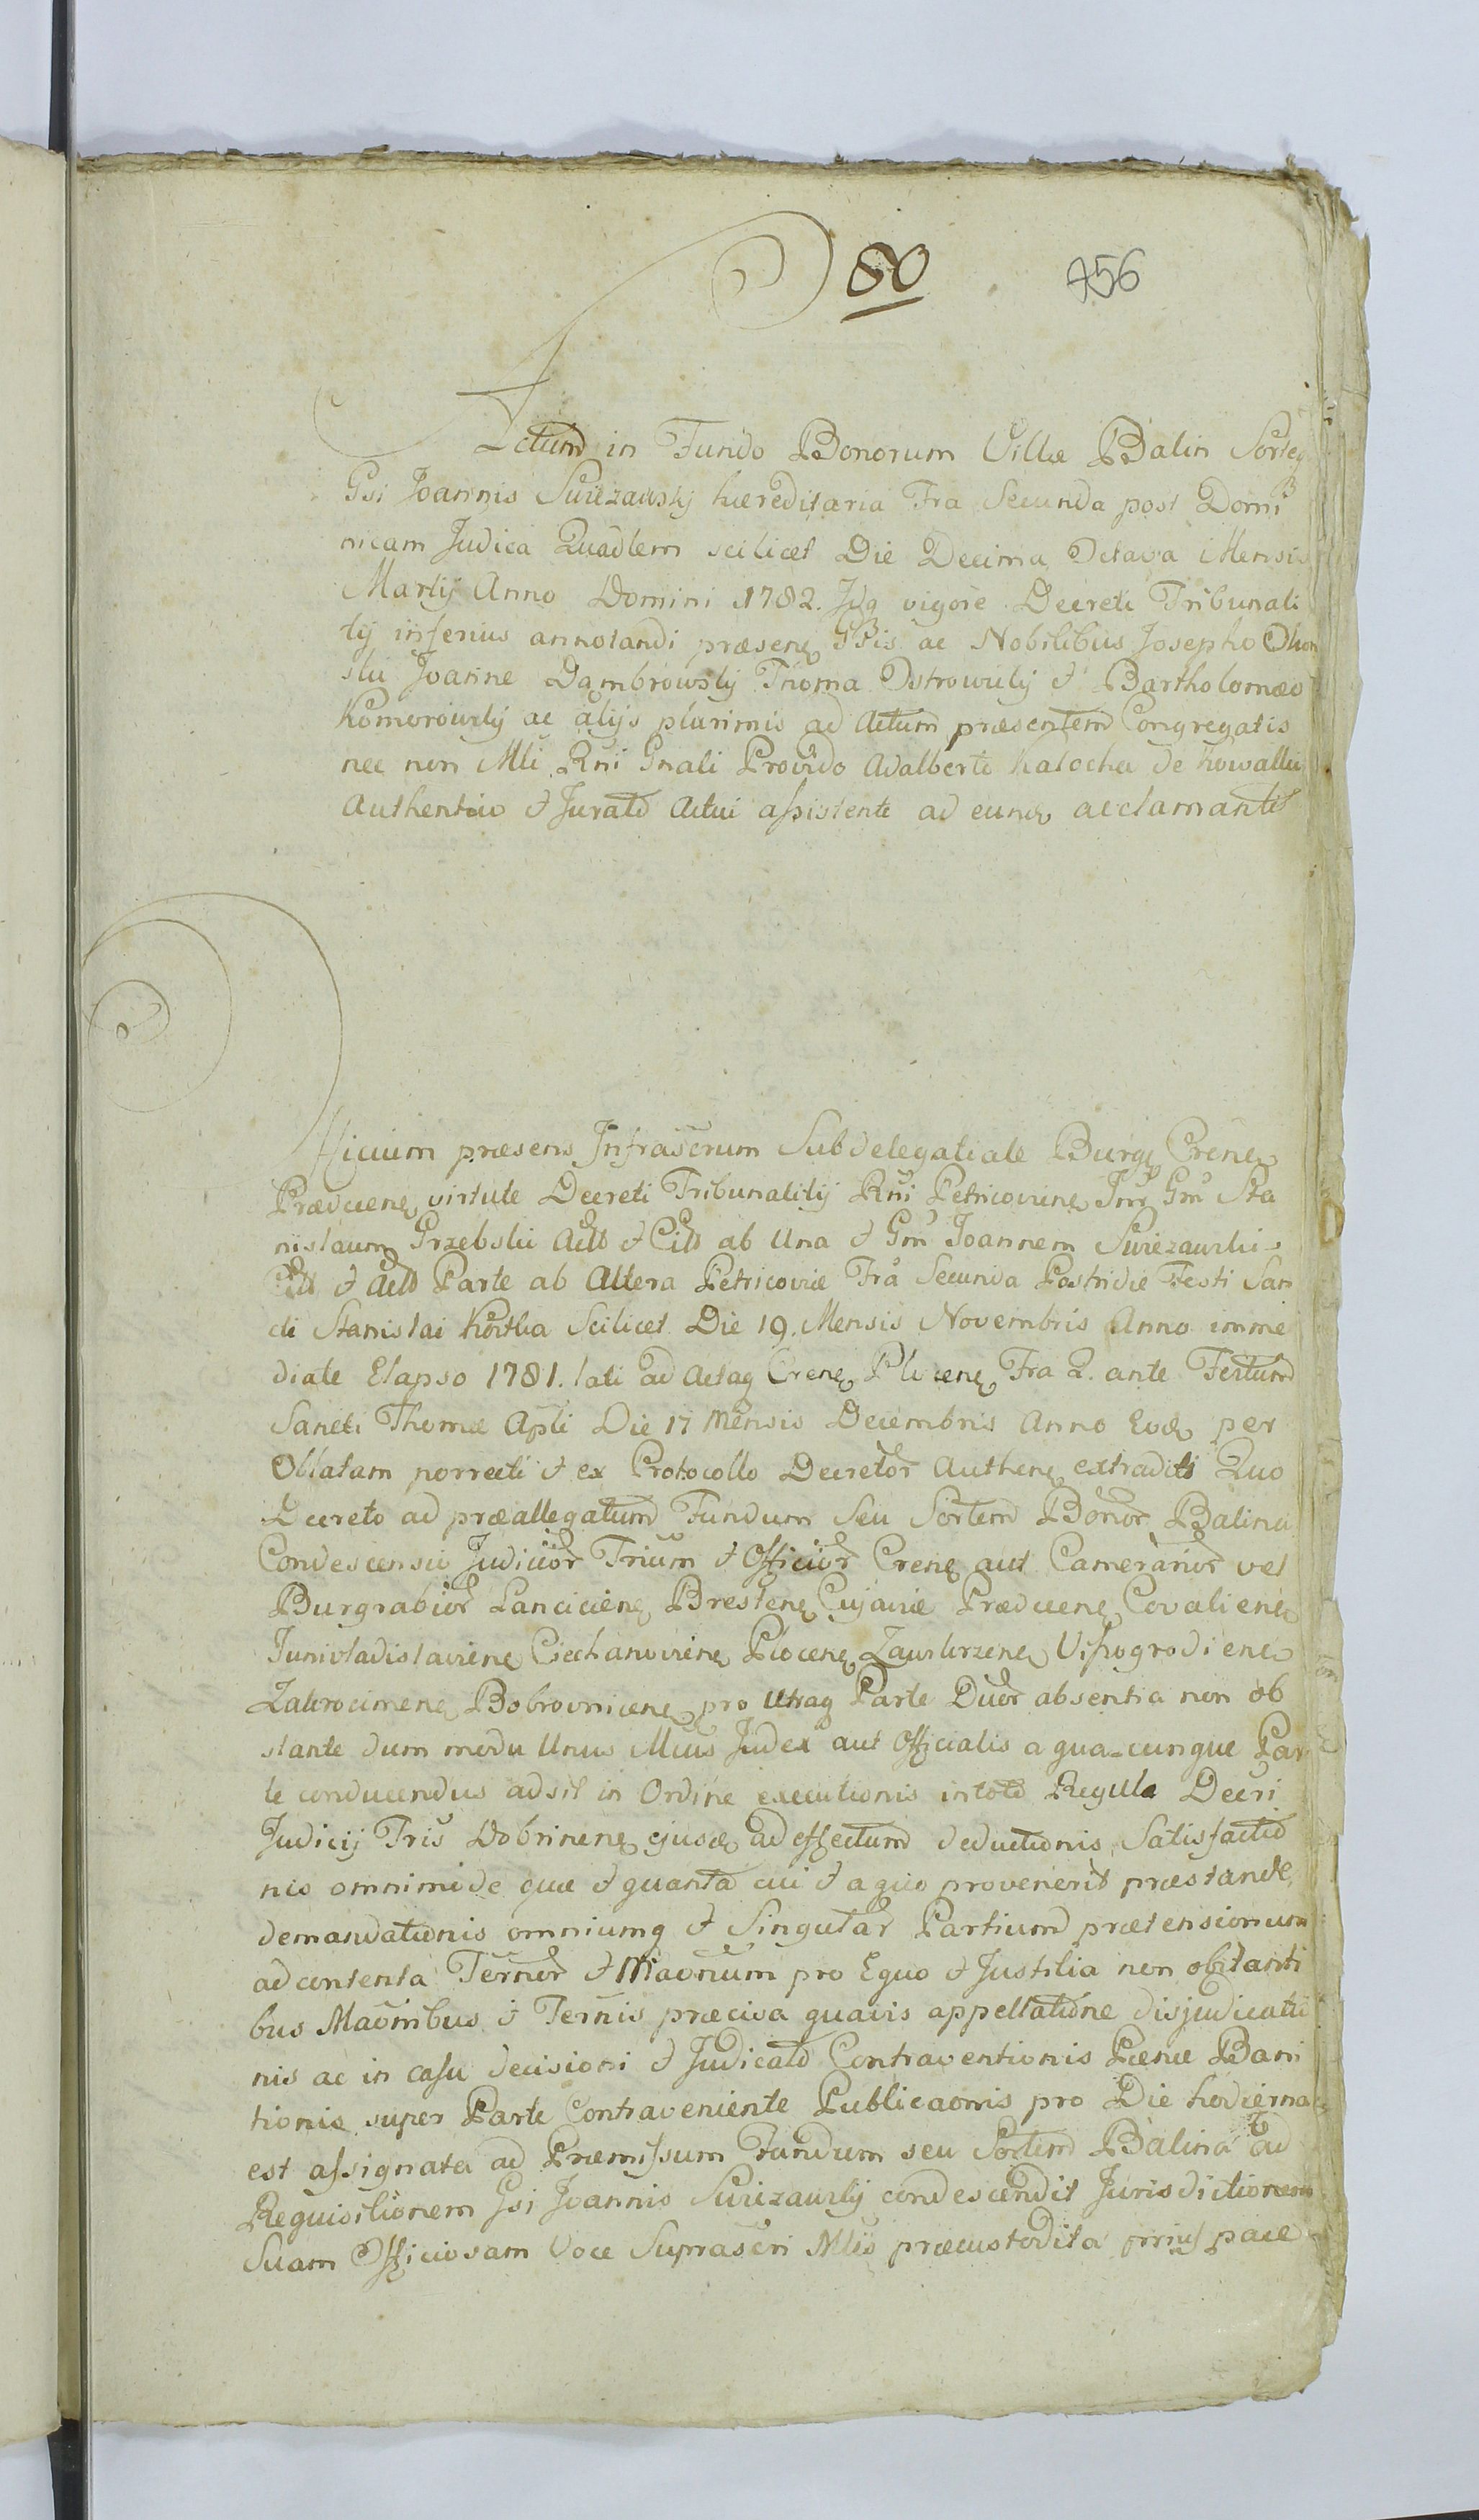 80 456
Actum in Fundo Bonorum Villæ Balin Sorteq
Gsi Joannis Swiezawskij hæreditaria Fra Secunda post Domi
nicam Judica Quadlem scilicet Die Decima Octava Mensis
Martij Anno Domini 1782. Ibq vigore Decreti Tribunali
tij inferius annotandi præsenę Gsis ac Nobilibus Josepho
ski Joanne Dąmbrowskij Thoma Ostrowskij & Bartholomæo
Komorowskij ac alijs plurimis ad Actum præsentem Congregatis
nec non Mli Rni Gnali Provido Adalberto Kalocha de Kowallu
Authentico & Jurato Actui assistente ad eundę acclamante
Officium præsens Infrascrum Subdelegatiale Burgę Crenę
Prædecenę virtute Decreti Tribunalitij Rni Petricovienę Intr Gm Sta
nislaum Grzebski Actt & Citt ab Una & Gm Joannem Swiezawski
Citt & Actt Parte ab Altera Petricoviæ Fra Secunda Postridie Festi San
cti Stanislai Kostka Scilicet Die 19. Mensis Novembris Anno imme
diate Elapso 1781. lati ad Actaq Crenę Plocenę Fra 2. ante Festum
Sancti Thomæ Apli Die 17 Mensis Decembris Anno Eodę per
Oblatam porrecti & ex Protocollo Decretor Authenę extraditi Quo
Decreto ad præallegatum Fundum Seu Sortem Bonor Balina
Condescensio Judicior Trium & Officior Crenę aut Camerarior vel
Burgrabior Lancicienę Brestenę Cujaviæ Prædecenę Covalienę
Junivladislavienę Ciechanovienę Plocenę Zawkrzenę Vissogrodienę
Zakrocimenę Bobrovnicenę pro Utraq Parte Duor absentia non ob
stante dum modo Unus Mius Judex aut Officialis a qua-cunque Par
te conducendus adsit in Ordine executionis in toto Regula Decri
Judicij Tris Dobrinenę ejusdę ad effectum deductionis, Satisfactio
nis omnimodæ quæ & quanta cui & a quo provenerit præstandæ,
demandationis omniumq & Singular Partium prætensionum
ad contenta Ternor & Maonum pro Equo & Justitia non obstanti
bus Maonibus & Ternis præcisa quavis appellatione disjudicatio
nis ac in casu decisioni & Judicato Contraventionis Pœnæ Bani
tionis super Parte Contraveniente Publicaonis pro Die hodierna
est assignata ad Præmissum Fundum seu Sortem Balina ad
Requisitionem Gsi Joannis Swiezawskij condescendit Jurisdictionem
Suam Officiosam Voce Suprascri Mlis præcustodita prius pace